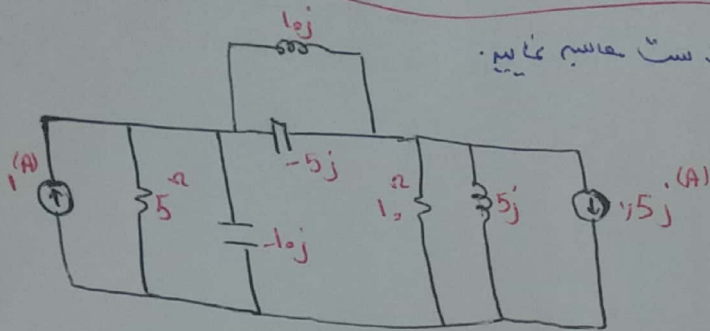 10j
ست محاسبه نمایید.
-5j
1 (A)
5 Ω
-10j
10 Ω
5j
0,5j (A)